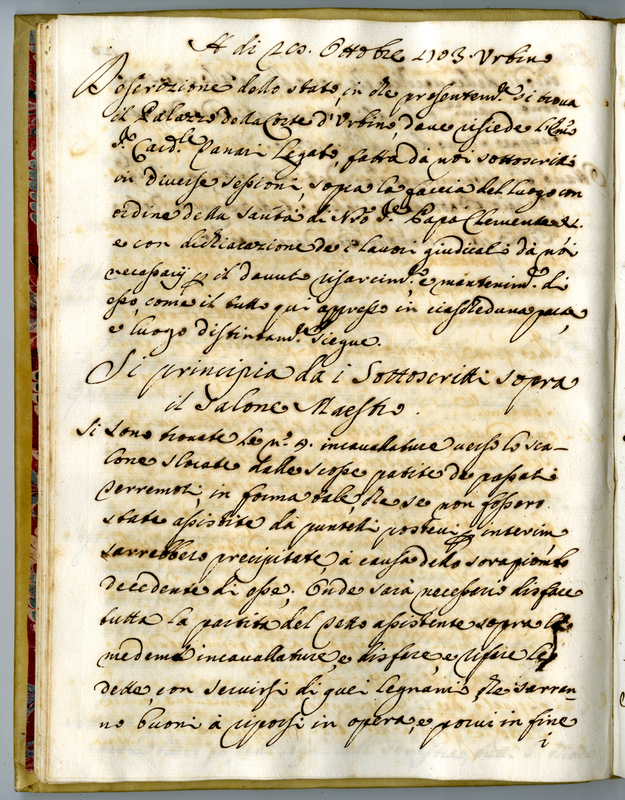 A di 20. Ottobre 1703. Urbino
Descrizione dello stato, in che presentem.te si trova
il Palazzo della Corte d'Urbino, dove risiede l'Em.o
S.r Card.le Panari Legato, fatta da noi sottoscritti
in diverse sessioni, sopra la faccia del luogo con
ordine della santà di N̄ro S.re Papa Clemente XI.
e con dichiarazione de i lavori giudicati da nòi
necessarij p il dovuto risarcim.to e mantenim.to di
esso, come il tutto qui appresso in ciascheduna parte,
e luogo distintam.te siegue.
Si principia da i Sottoscritti sopra
il Salone Maestro.
Si sono trovate le n.o 9. incavallature verso lo sca-
lone slocate dalle scosse patite de passati
Terremoti, in forma tale, che se non fossero
state assistite da puntelli postevi p interim
sarrebbero precipitate, à causa dello sorapionbo
decedente di esse; Onde sarà necessario disfare
tutta la partita del Tetto assistente sopra le
medeme incavallature, e disfare, e rifare le
dette, con servirsi di quei legnami, che sarran-
no buoni à riporsi in opera, e porvi in fine
i